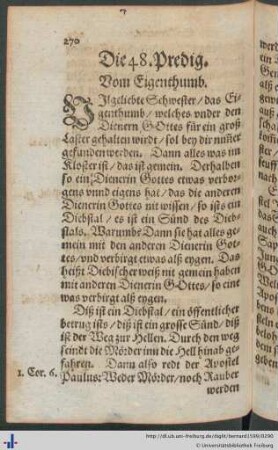 270
Die 48. Predig.
Vom Eigenthumb.
Ilgeliebte Schwester / das Ei-
genthumb / welches vnder den
Dienern GOttes für ein groß
Laster gehalten wirdt / sol bey dir nim̃er
gefunden werden. Dann alles was im
Kloster ist / das ist gemein. Derhalben
so ein Dienerin Gottes etwas verbor-
gens vnnd eigens hat / das die anderen
Dienerin Gottes nit wissen / so ists ein
Diebstal / es ist ein Sünd des Dieb-
stals. Warumb? Dann sie hat alles ge-
mein mit den anderen Dienerin Got-
tes / vnd verbirgt etwas alß eygen. Das
heißt Diebischer weiß nit gemein haben
mit anderen Dienerin GOttes / so eine
was verbirgt alß eygen.
Diß ist ein Diebstal / ein öffentlicher
betrug ists / diß ist ein grosse Sünd / diß
ist der Weg zur Hellen. Durch den weg
seindt die Mörder inn die Hell hinab ge-
fahren. Dann also redt der Apostel
1. Cor. 6. Paulus: Weder Mörder / noch Rauber
werden
http://dl.ub.uni-freiburg.de/diglit/bernard1599/0290
© Universitätsbibliothek Freiburg